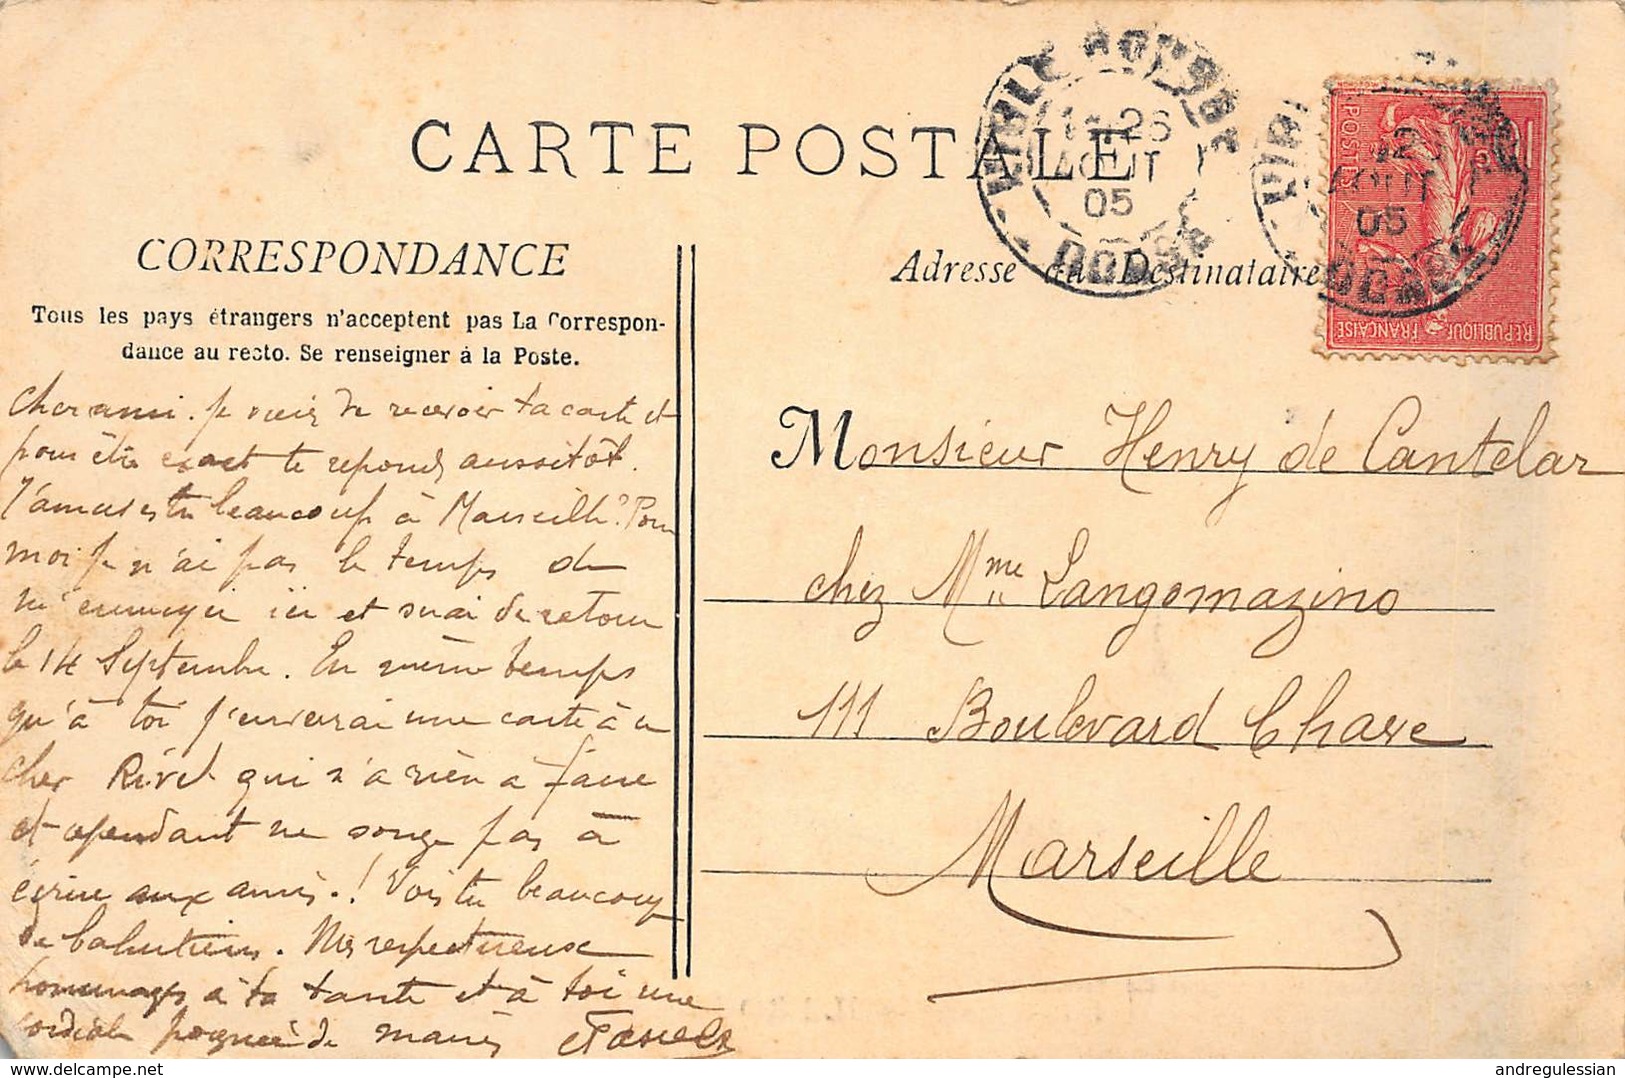 CARTE POSTALE
11 26
AOUT
05
CORRESPONDANCE
Adresse du Destinataire
Tous les pays étrangers n'acceptent pas La Correspon-
dance au recto. Se renseigner à la Poste.
POSTES
REPUBLIQUE FRANÇAISE
Cher ami. je viens de recevoir ta carte et
pour être exact te reponds aussitôt.
T'amuses tu beaucoup à Marseille? Pour
moi je n'ai pas le temps de
m'ennuyer ici et serai de retour
le 14 Septembre. En même temps
qu'à toi j'enverrai une carte à ce
cher Rivet qui n'a rien à faire
et cependant ne songe pas à
écrire aux amis.! Vois tu beaucoup
de bahutiens. Mes respectueux
hommages à ta tante et à toi une
cordiale poignée de mains
Monsieur Henry de Cantelar
chez Mme Langomazino
111 Boulevard Chave
Marseille
andregulessian